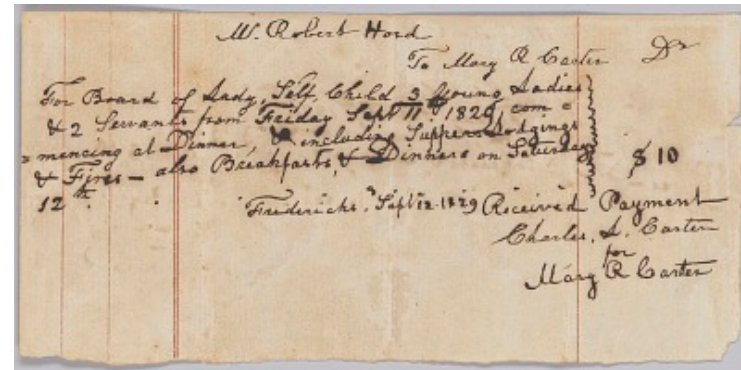 Mr. Robert Hord
To Mary R Carter Dr
For Board of Lady, Self, Child 3 Young Ladies
& 2 Servants from Friday Sept 11th 1829, com =
= mencing at Dinner, & including Suppers Lodgings
& Fires – also Breakfasts, & Dinners on Saturday $10
12th.
Fredericks.g Sept 12. 1829 Received Payment
Charles, L. Carter
for
Mary R Carter